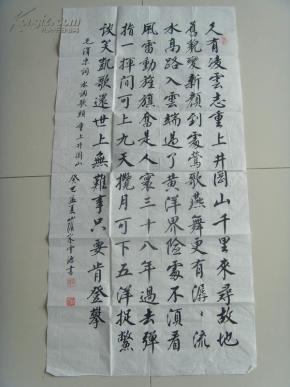 久有凌雲志重上井岡山千里來尋故地
舊貌變新顏到處鶯歌燕舞更有潺々流
水高路入雲端過了黃洋界險處不須看
風雷動旌旗奮是人寰三十八年過去彈
指一揮間可上九天攬月可下五洋捉鱉
談笑凱歌還世上無難事只要肯登攀
毛澤東詞 水調歌頭 重上井岡山 癸巳孟夏 書